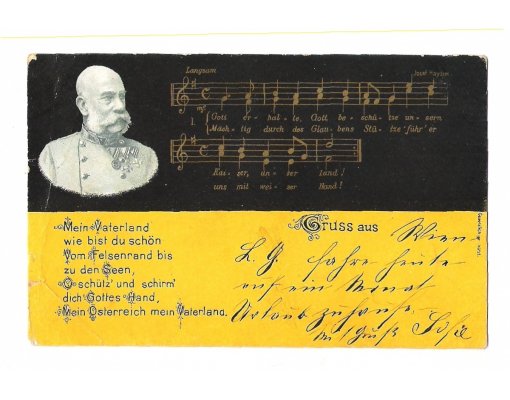 Langsam
Josef Haydn
mf
1. Gott er-hal-te, Gott be-schü-tze un-sern
Mäch-tig durch des Glau-bens Stü-tze führ' er
Kai-ser, un-ser Land!
uns mit wei-ser Hand!
Mein Vaterland
wie bist du schön
Vom Felsenrand bis
zu den Seen,
O schütz' und schirm'
dich Gottes Hand,
Mein Österreich mein Vaterland.
Gruss aus
Wien
L. G. fahre heute
auf ein Monat
Urlaub zuhause.
Gruß